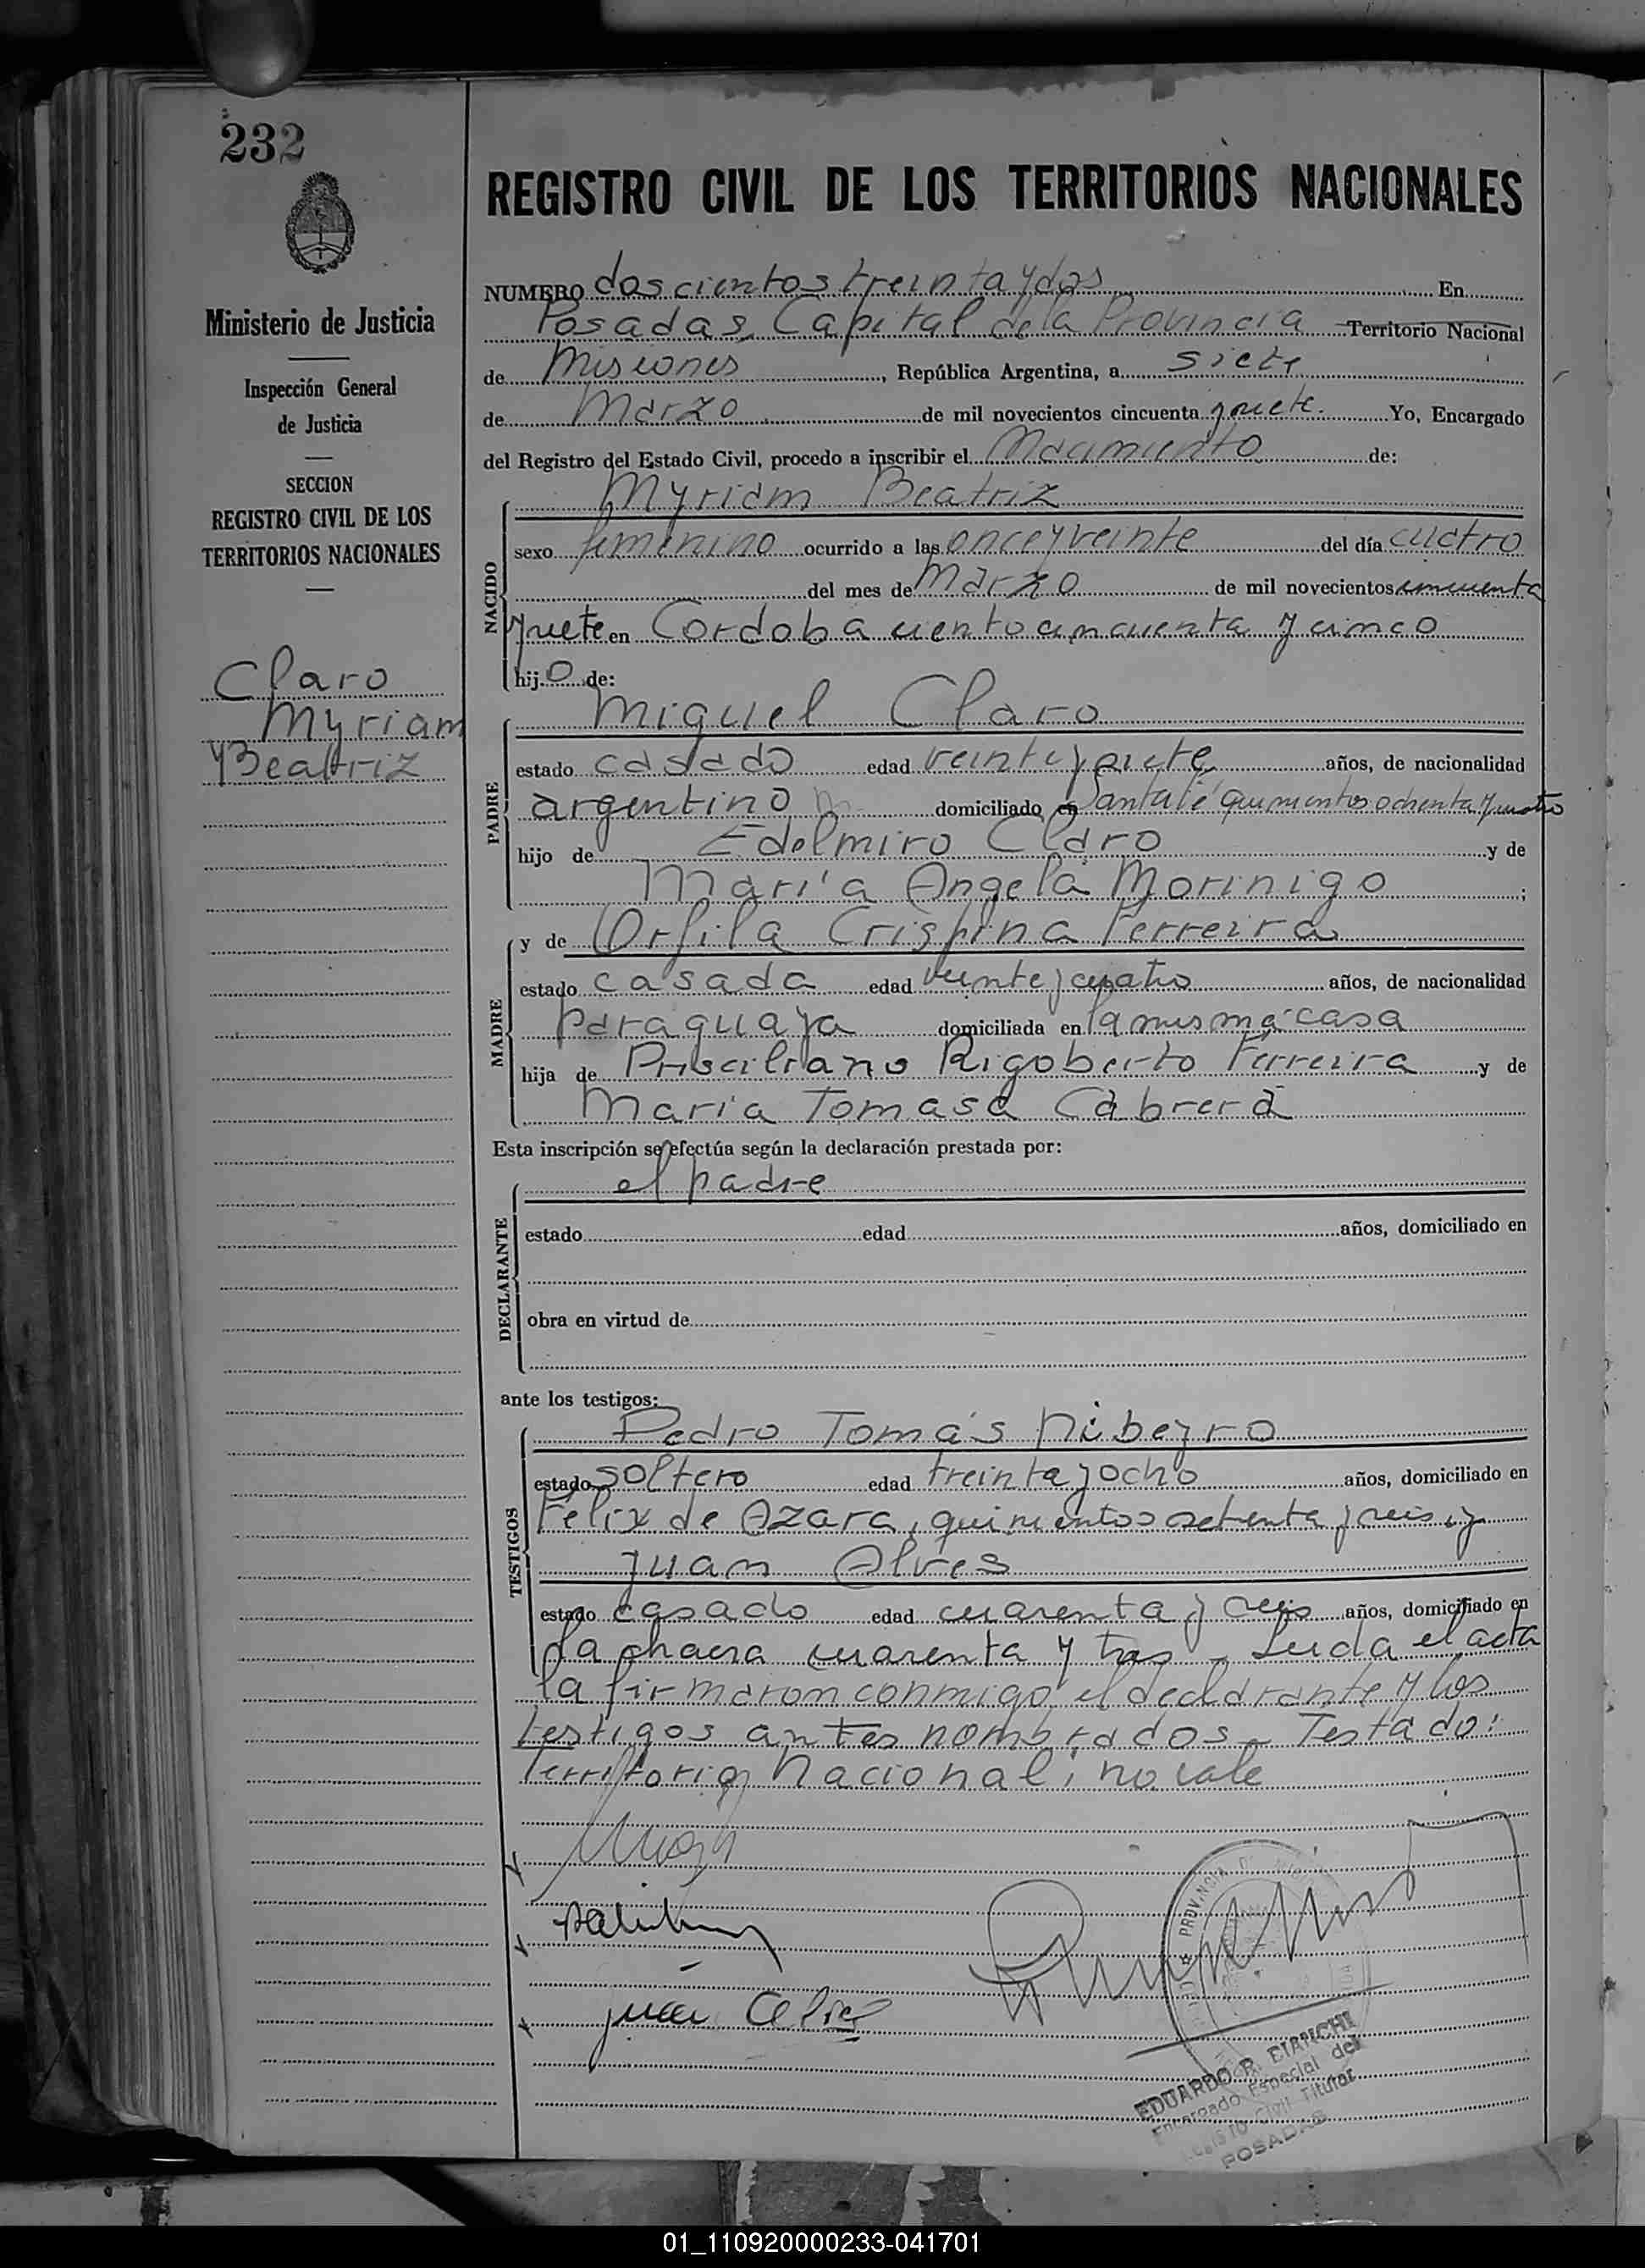 232
Ministerio de Justicia
Inspección General
de Justicia
SECCION
REGISTRO CIVIL DE LOS
TERRITORIOS NACIONALES
Claro
Myriam
Beatriz
REGISTRO CIVIL DE LOS TERRITORIOS NACIONALES
NUMERO doscientos treinta y dos En
Posadas, Capital de la Provincia Territorio Nacional
de Misiones, República Argentina, a siete
de Marzo de mil novecientos cincuenta y siete. Yo, Encargado
del Registro del Estado Civil, procedo a inscribir el Nacimiento de:
NACIDO
Myriam Beatriz
sexo femenino ocurrido a las once y veinte del día cuatro
del mes de Marzo de mil novecientos cincuenta
y siete en Cordoba ciento cincuenta y cinco
hijo de:
PADRE
Miguel Claro
estado casado edad veinte y siete años, de nacionalidad
argentino domiciliado en Santa Fé quinientos ochenta y cuatro
hijo de Edelmiro Claro y de
María Angela Morinigo;
MADRE
y de Orfila Crispina Ferreira
estado casada edad veinte y cuatro años, de nacionalidad
paraguaya domiciliada en la misma casa
hija de Prisciliano Rigoberto Ferreira y de
Maria Tomasa Cabrera
Esta inscripción se efectúa según la declaración prestada por:
DECLARANTE
el padre
estado edad años, domiciliado en
obra en virtud de
ante los testigos:
TESTIGOS
Pedro Tomás Ribeyro
estado soltero edad treinta y ocho años, domiciliado en
Félix de Azara, quinientos setenta y seis, y
Juan Alves
estado casado edad cuarenta y seis años, domiciliado en
la chacra cuarenta y tres - Leida el acta
la firmaron conmigo el declarante y los
testigos antes nombrados - Testado:
Territorio Nacional; no vale
Juan Alves
PROVINCIA DE
EDUARDO R. BIANCHI
Encargado Especial del
Registro Civil Titular
POSADAS
01_110920000233-041701